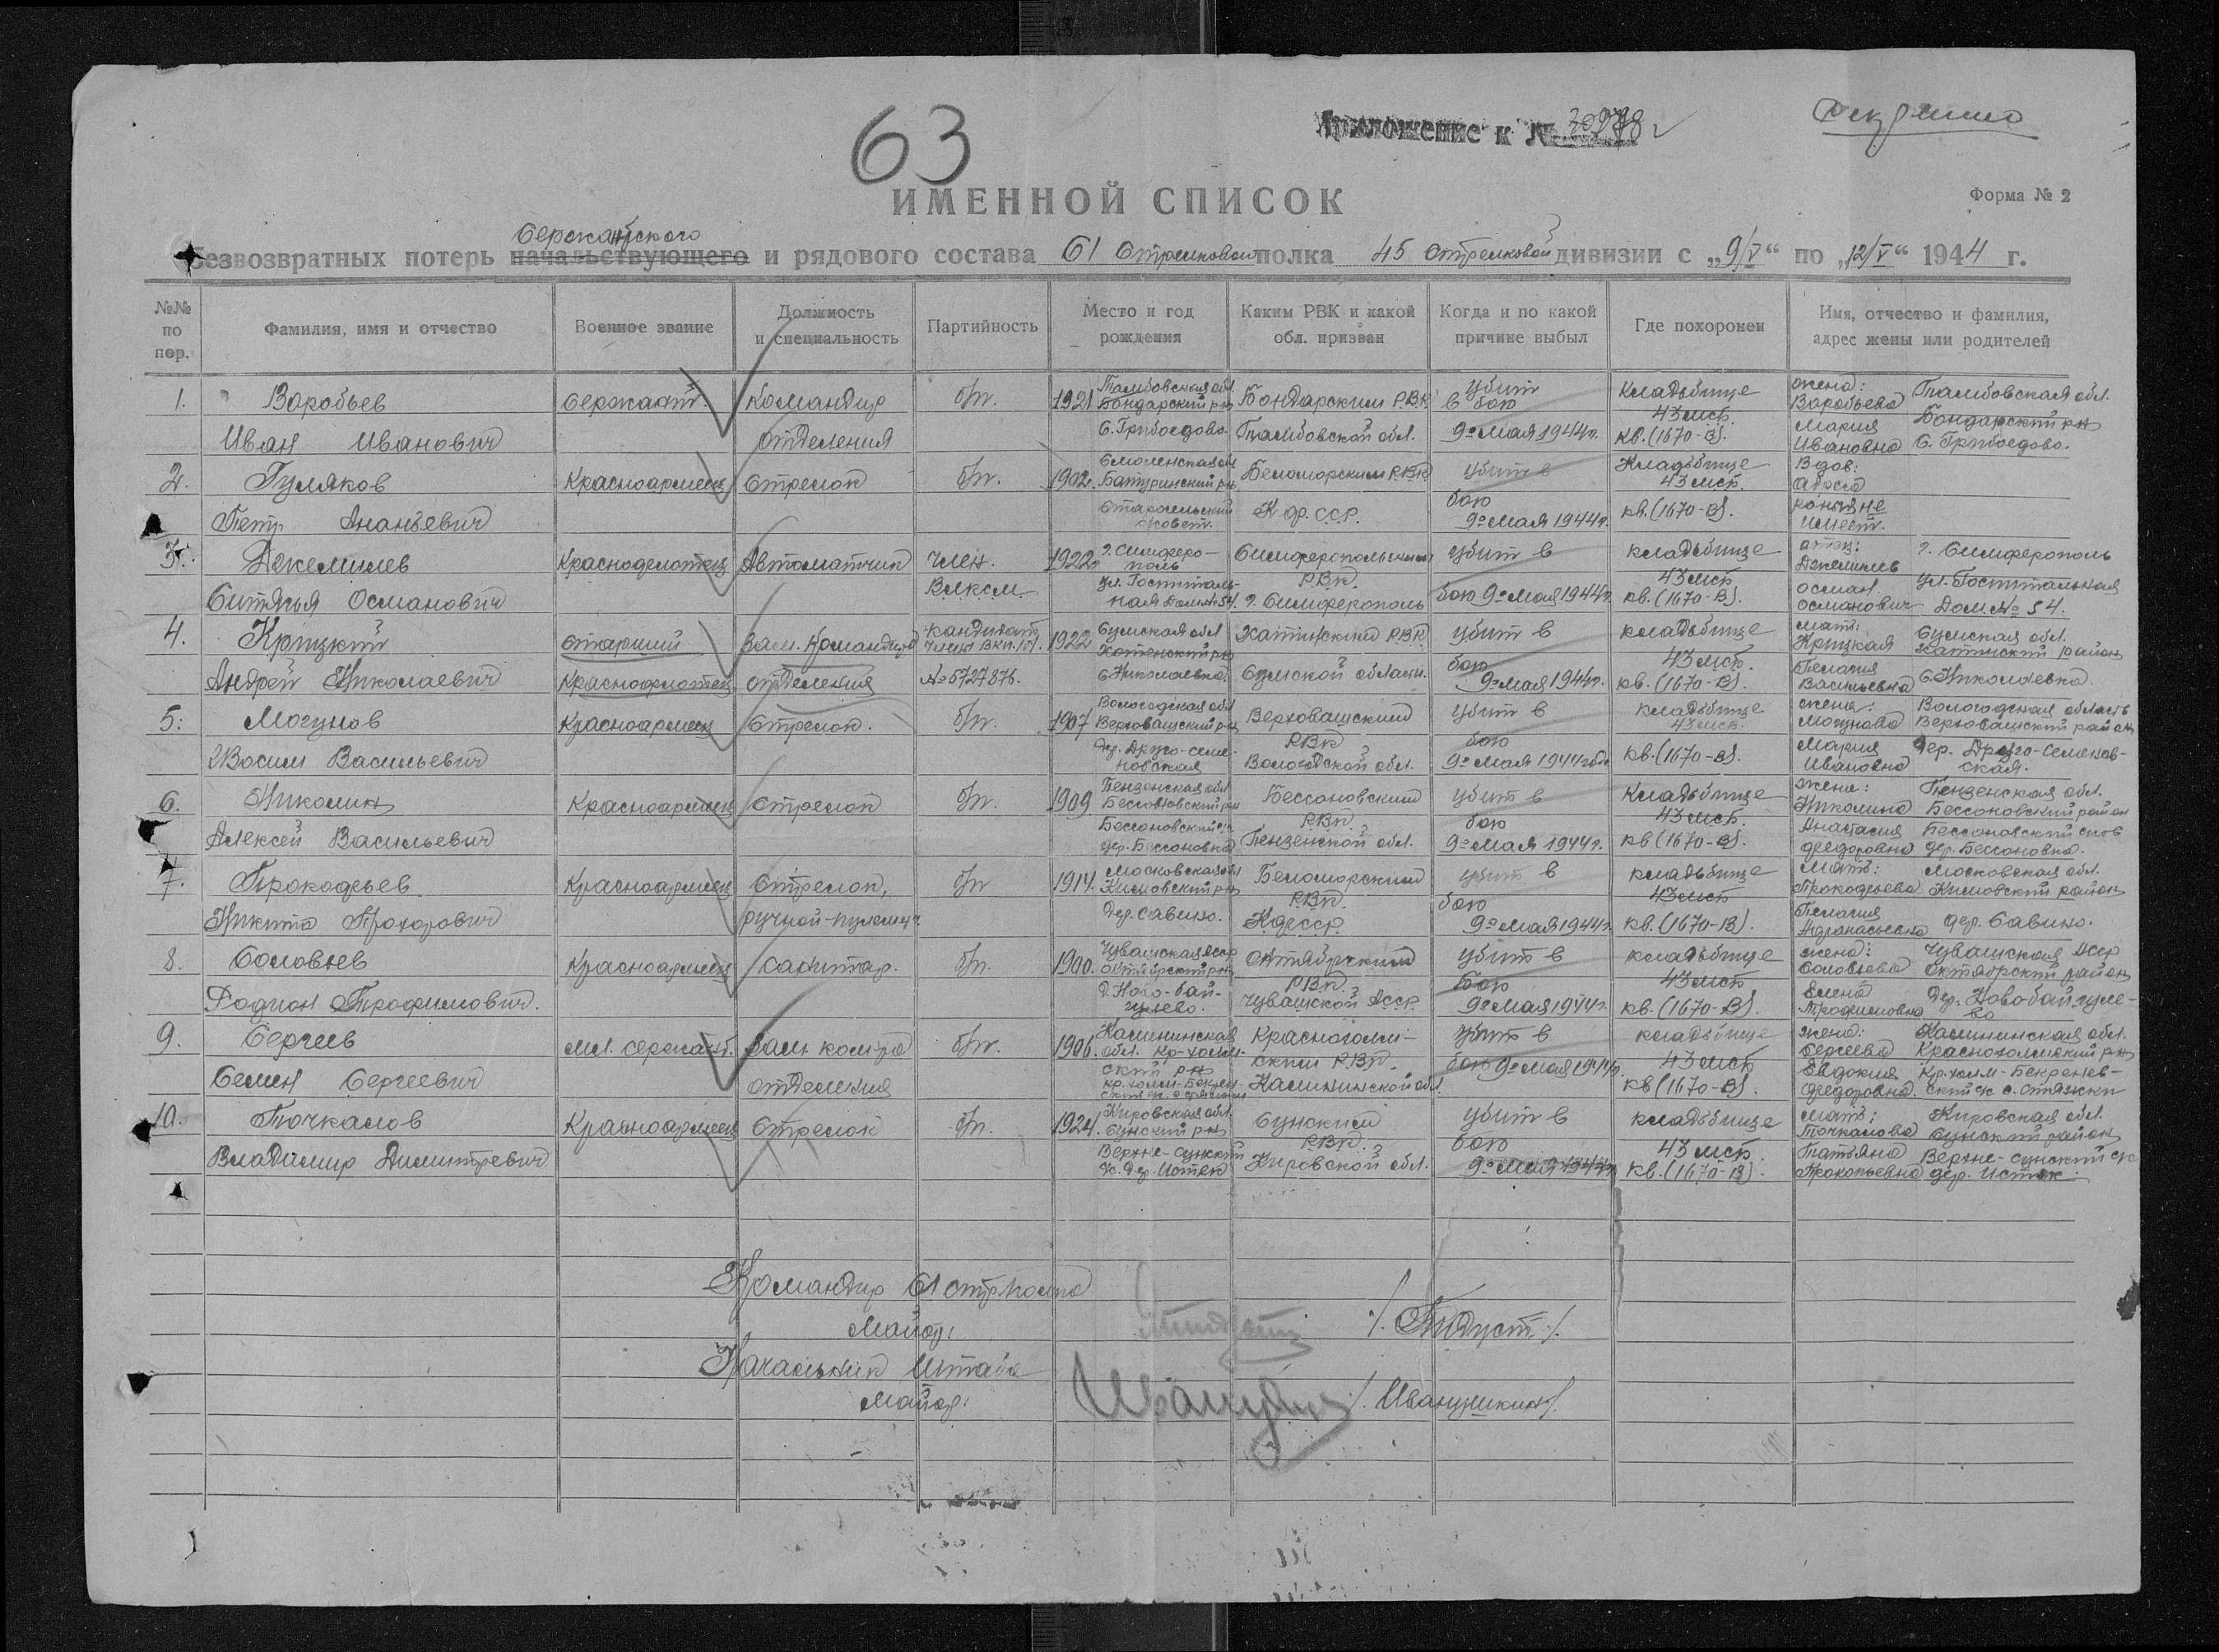 63
Приложение к №
Секретно
ИМЕННОЙ СПИСОК
Форма № 2
сержантского
безвозвратных потерь начальствующего и рядового состава 61 стрелкового полка 45 стрелковой дивизии с „9/V“ по „12/V“ 1944 г.
№№ по пор.
Фамилия, имя и отчество
Военное звание
Должность и специальность
Партийность
Место и год рождения
Каким РВК и какой обл. призван
Когда и по какой причине выбыл
Где похоронен
Имя, отчество и фамилия, адрес жены или родителей
1. Воробьев Иван Иванович
сержант.
Командир отделения
б/п.
1921 Тамбовская обл Бондарский р-н С. Грибоедово
Бондарским РВК Тамбовской обл.
убит в бою 9го мая 1944г.
Кладбище 43 мсб. кв. (1670-В).
жена: Воробьева Мария Ивановна
Тамбовская обл. Бондарский р-н С. Грибоедово.
2. Гуляков Петр Ананьевич
Красноармеец
Стрелок
б/п.
1902г. Смоленская обл Батуринский р-н
Беломорским РВК К.ф.ССР.
убит в бою 9го мая 1944г.
Кладбище 43 мсб. кв. (1670-В).
Вдов:
не имеет.
3. Джемилев Османович
Краснофлотец
Автоматчик
Член. ВЛКСМ
1922г г. Симферополь ул. Госпитальная Дом № 54.
Симферопольским РВК. г. Симферополь
убит в бою 9го мая 1944г.
кладбище 43 мсб кв. (1670-В).
отец: Джемилев осман османович
г. Симферополь ул. Госпитальная Дом. № 54.
4. Крицкий Андрей Николаевич
старший Краснофлотец
Зам. Командира отделения
кандидат член ВКП/б/. № 5727876.
1922 Сумская обл Хотенский р-н С. Николаевка.
Хатинский РВК Сумской области.
убит в бою 9го мая 1944г.
кладбище 43 мсб. кв. (1670-В).
мать: Крицкая Пелагия Васильевна
Сумская обл. Хатинский район С. Николаевка.
5. Могунов Васильевич
Красноармеец
Стрелок.
б/п.
1907 Вологодская обл Верховашский р-н
Верховашский РВК Вологодской обл.
убит в бою 9го мая 1944года
кладбище 43 мсб. кв. (1670-В).
жена: Могунова Мария Ивановна
Вологодская область Верховашский район
6. Николин Алексей Васильевич
Красноармеец
Стрелок
б/п.
1909 Пензенская обл Бессоновский р-н Бессоновский с/с дер. Бессоновка
Бессоновский РВК. Пензенской обл.
убит в бою 9го мая 1944г.
Кладбище 43 мсб. кв (1670-В).
жена: Николина Анастасия Федоровна
Пензенская обл. Бессоновский район Бессоновский дер. Бессоновка.
7. Прокофьев Никита Прохорович
Красноармеец
Стрелок, ручной-пулемет.
б/п
1914. Московская обл Кимовский р-н Дер. Савино.
Беломорский РВК. КфССР
убит в бою 9го мая 1944г.
кладбище 43 мсб кв. (1670-В).
мать: Прокофьева Пелагия Афанасьевна
Московская обл. Кимовский район дер. Савино.
8. Соловьев Родион Трофимович.
Красноармеец
Санитар.
б/п.
1900. Чувашская АССР Октябрский р-н
Октябрский РВК. Чувашской АССР
убит в бою 9го мая 1944г.
кладбище 43 мсб кв. (1670-В).
жена: Соловьева Елена Трофимовна
Чувашская АССР Октябрский район
9. Сергеев Семен Сергеевич
мл. сержант.
Зам. ком-ра отделения
б/п.
1906. Калининская обл. Кр-холмский р-н
Краснохолмским РВК. Калининской обл.
убит в бою 9го мая 1944г.
кладбище 43 мсб кв (1670-В).
жена: Сергеева Евдокия Федоровна.
Калининская обл. Краснохолмский р-н
10. Точкалов Владимир Димитревич
Красноармеец
Стрелок
б/п.
1924. Кировская обл. Сунский р-н Верхне-сунский дер. Исток
Сунский РВК. Кировской обл.
убит в бою 9го мая 1944г.
кладбище 43 мсб. кв. (1670-В).
мать: Точкалова Татьяна Прокопьевна
Кировская обл. Сунский район Верхне-сунский с/с дер. Исток
Командир 61 стр полка
Майор:
/. Пидуст /.
Начальник Штаба
майор:
/. Иванушкин /.